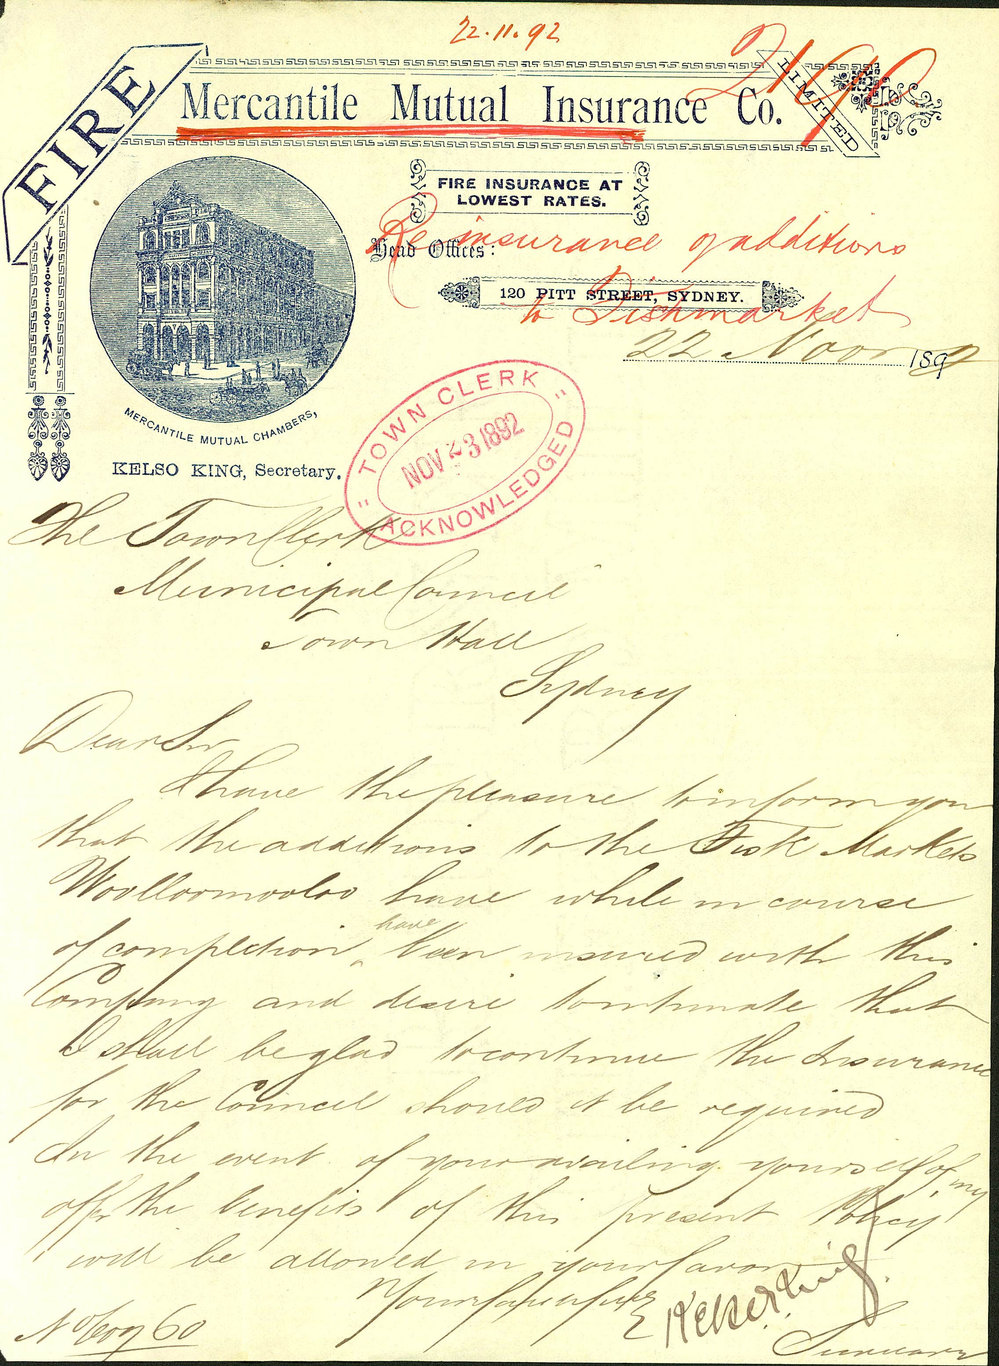 22.11.92
2196
FIRE
Mercantile Mutual Insurance Co.
LIMITED
FIRE INSURANCE AT
LOWEST RATES.
Re insurance of additions
Head Offices:
120 PITT STREET, SYDNEY.
to Fishmarket
22 Novr 1892
MERCANTILE MUTUAL CHAMBERS,
KELSO KING, Secretary.
"TOWN CLERK"
NOV 23 1892
ACKNOWLEDGED
The Town Clerk
Municipal Council
Town Hall
Sydney
Dear Sir
I have the pleasure to inform you
that the additions to the Fish Markets
Woolloomooloo have while in course
of completion have been insured with this
Company and desire to intimate that
I shall be glad to continue the Insurance
for the Council should it be required
In the event of your availing yourself of my
offer the benefits of this present Policy
will be allowed in your favor
Yours faithfully
Kelso King
Secretary
60